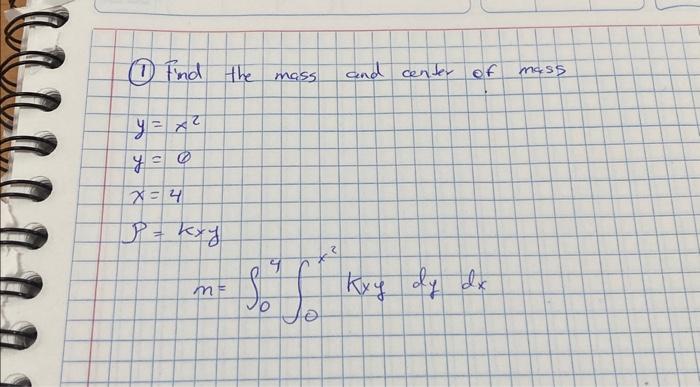 ① Find the mass and center of mass
y = x²
y = 0
x = 4
ρ = kxy
m = ∫₀⁴ ∫₀^x² kxy dy dx